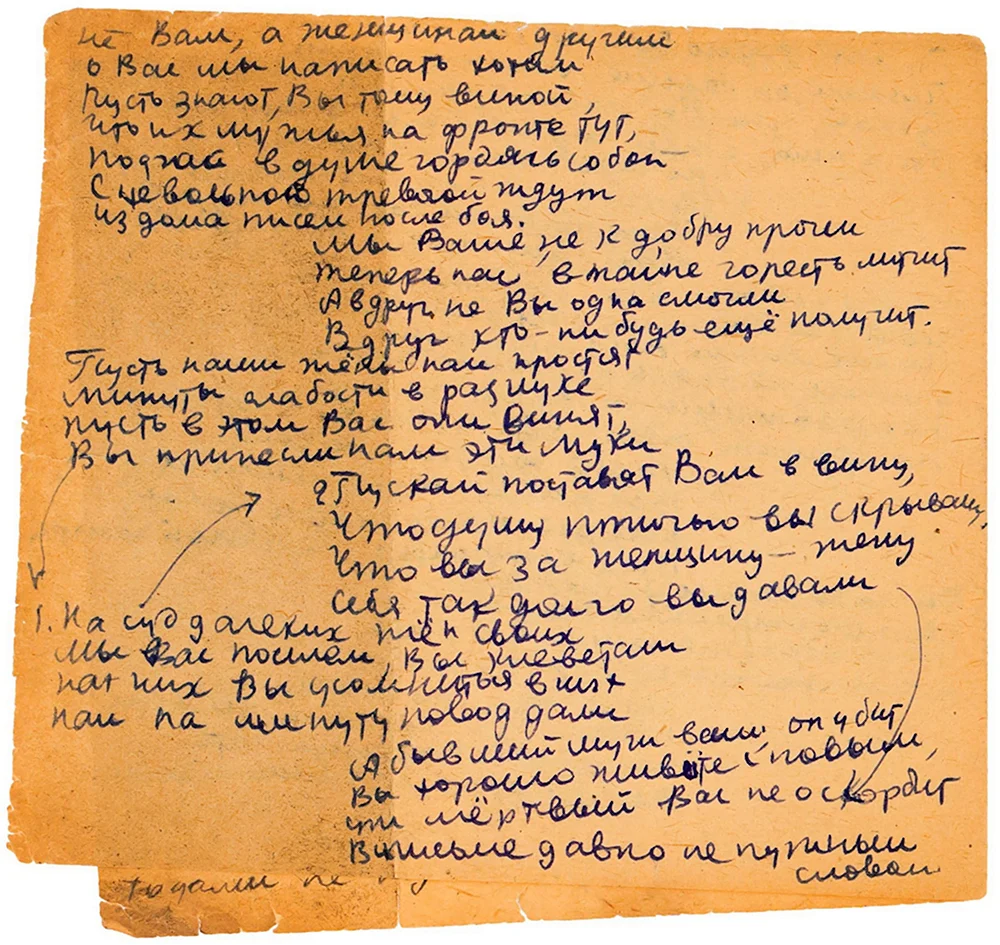 не Вам, а женщинам другим
о Вас мы написать хотим
Пусть знают, Вы тому виной,
что их мужья на фронте тут,
подчас в душе
С невольною тревогой ждут
из дома писем после боя.
Мы Ваше не к добру прочли
теперь нас втайне горесть мучит
А вдруг не Вы одна смогли
Вдруг кто-нибудь ещё получит.
Пусть наши жёны нам простят
минуты слабости в разлуке
пусть в этом Вас они винят,
Вы принесли нам эти муки
2 Пускай поставят Вам в вину,
Что душу птичью вы скрывали,
Что вы за женщину - жену
себя так долго выдавали
1. На суд далеких жён своих
Мы Вас пошлем, Вы клеветали
на них Вы усомниться в них
нам на минуту повод дали
А бывший муж ваш он убит
Вы хорошо живёте с новым,
уж мёртвый Вас не оскорбит
В письме давно не нужным
словом